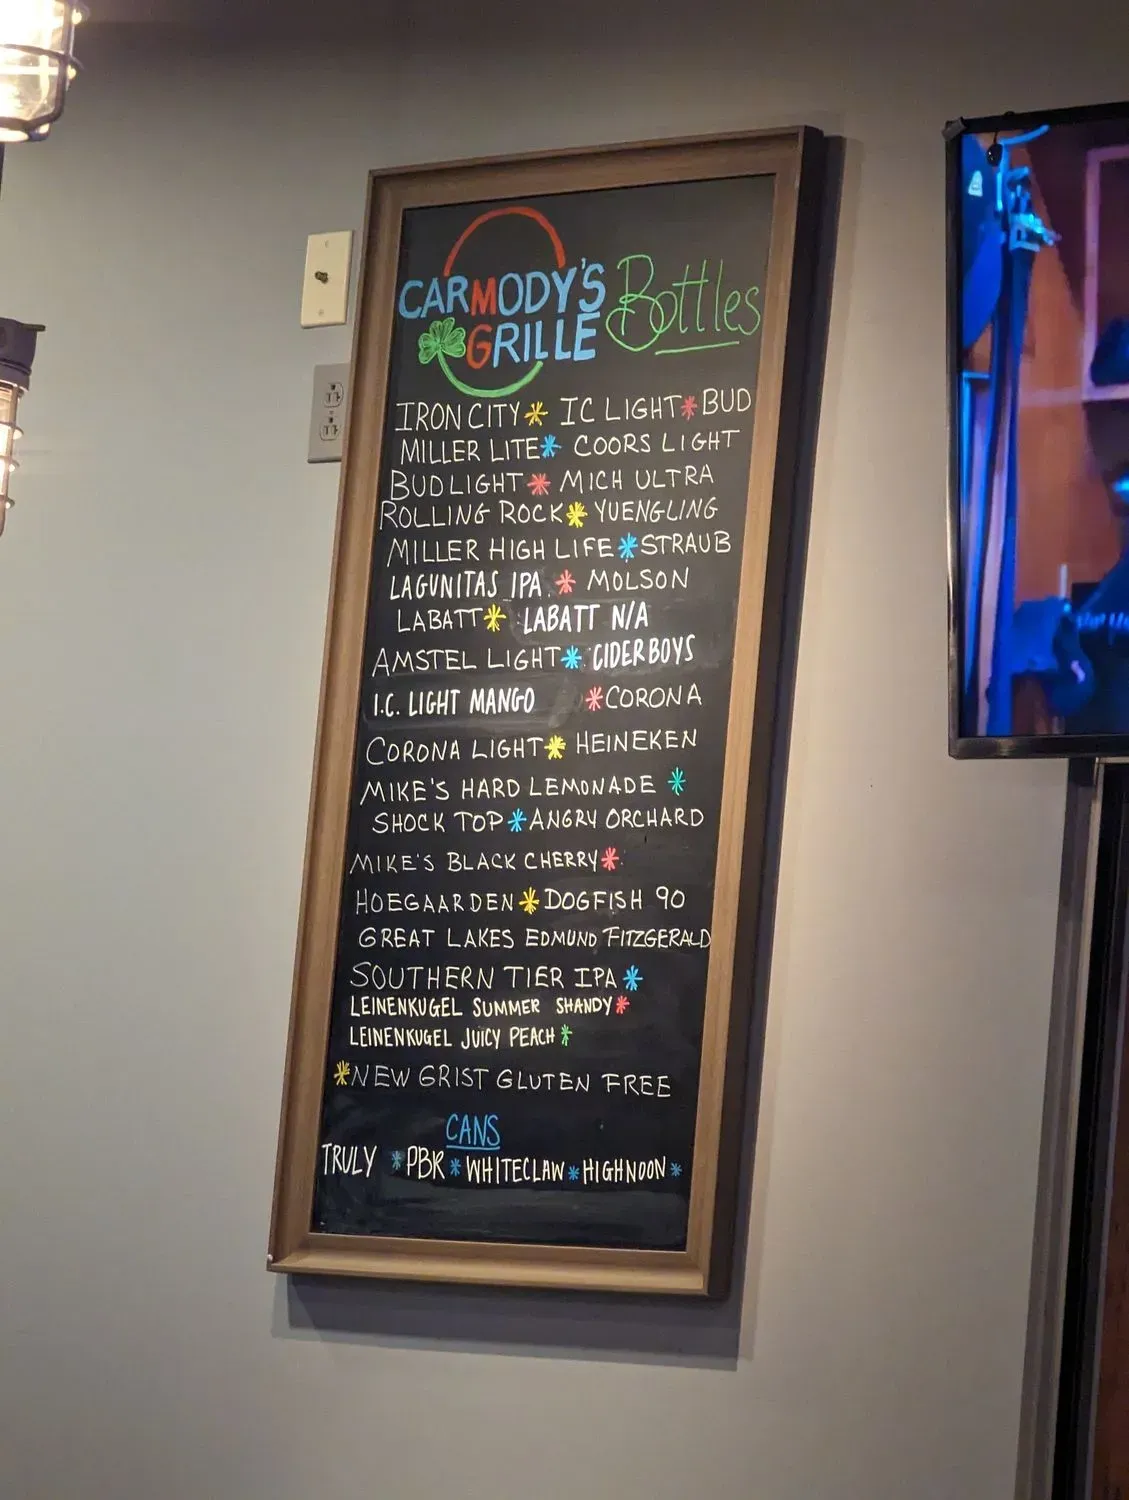 CARMODY'S
GRILLE
Bottles
IRON CITY * IC LIGHT * BUD
MILLER LITE * COORS LIGHT
BUD LIGHT * MICH ULTRA
ROLLING ROCK * YUENGLING
MILLER HIGH LIFE * STRAUB
LAGUNITAS IPA * MOLSON
LABATT * LABATT N/A
AMSTEL LIGHT * CIDERBOYS
I.C. LIGHT MANGO * CORONA
CORONA LIGHT * HEINEKEN
MIKE'S HARD LEMONADE *
SHOCK TOP * ANGRY ORCHARD
MIKE'S BLACK CHERRY *
HOEGAARDEN * DOGFISH 90
GREAT LAKES EDMUND FITZGERALD
SOUTHERN TIER IPA *
LEINENKUGEL SUMMER SHANDY *
LEINENKUGEL JUICY PEACH *
* NEW GRIST GLUTEN FREE
CANS
TRULY * PBR * WHITECLAW * HIGHNOON *